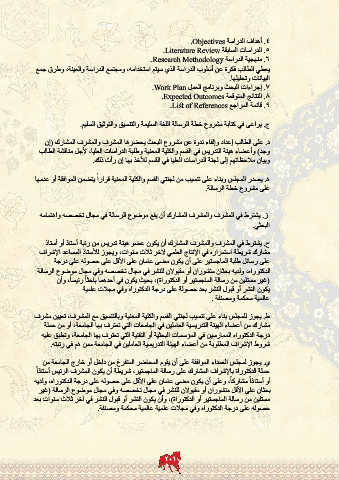 ٤. أهداف الدراسة Objectives.
٥. الدراسات السابقة Literature Review.
٦. منهجية الدراسة Research Methodology.
يعطي الطالب فكرة عن أسلوب الدراسة الذي سيتم استخدامه، ومجتمع الدراسة والعينة، وطرق جمع
البيانات وتحليلها.
٧. إجراءات البحث وبرنامج العمل Work Plan.
٨. النتائج المتوقعة Expected Outcomes.
٩. قائمة المراجع List of References.
ج. يراعى في كتابة مشروع خطة الرسالة اللغة السليمة والتنسيق والتوثيق السليم.
د. على الطالب إعداد وإلقاء ندوة عن مشروع البحث يحضرها المشرف والمشرف المشارك (إن
وجد) وأعضاء هيئة التدريس في القسم والكلية المعنية وطلبة الدراسات العليا، لأجل مناقشة الطالب
وبيان ملاحظاتهم إلى لجنة الدراسات العليا في القسم للأخذ بها إن رأت ذلك.
هـ. يصدر المجلس وبناء على تنسيب من لجنتي القسم والكلية المعنية قراراً يتضمن الموافقة أو عدمها
على مشروع خطة الرسالة.
ز. يشترط في المشرف والمشرف المشارك أن يقع موضوع الرسالة في مجال تخصصه واهتمامه
البحثي.
ح. يشترط في المشرف والمشرف المشارك أن يكون عضو هيئة تدريس من رتبة أستاذ أو أستاذ
مشارك شريطة استمراره في الإنتاج العلمي لآخر ثلاث سنوات، ويجوز للأستاذ المساعد الإشراف
على رسائل طلبة الماجستير على أن يكون مضى عامان على الأقل على حصوله على درجة
الدكتوراه، ولديه بحثان منشوران أو مقبولان للنشر في مجال تخصصه وفي مجال موضوع الرسالة
(غير مستلين من رسالة الماجستير أو الدكتوراة)، بحيث يكون في أحدهما باحثاً رئيساً، وأن
يكون النشر أو قبول النشر بعد حصوله على درجة الدكتوراه وفي مجلات علمية
عالمية محكمة ومصنفة.
ط. يجوز للمجلس بناء على تنسيب لجنتي القسم والكلية المعنية وبالتنسيق مع المشرف، تعيين مشرف
مشارك من أعضاء الهيئة التدريسية العاملين في الجامعات التي تعترف بها الجامعة، أو من حملة
درجة الدكتوراه الممارسين في المؤسسات البحثية أو التقنية التي تعترف بها الجامعة، وتطبق عليه
شروط الإشراف المطلوبة من أعضاء الهيئة التدريسية العاملين في الجامعة ممن هم في رتبته.
ي. يجوز لمجلس العمداء الموافقة على أن يقوم المحاضر المتفرغ من داخل أو خارج الجامعة من
حملة الدكتوراة بالإشراف المشارك على رسالة الماجستير، شريطة أن يكون المشرف الرئيس أستاذاً
أو أستاذاً مشاركاً، وعلى أن يكون مضى عامان على الأقل على حصوله على درجة الدكتوراه، ولديه
بحثان على الأقل منشوران أو مقبولان للنشر في مجال تخصصه وفي مجال موضوع الرسالة (غير
مستلين من رسالة الماجستير أو الدكتوراة)، وأن يكون النشر أو قبول النشر في آخر ثلاث سنوات بعد
حصوله على درجة الدكتوراه وفي مجلات علمية عالمية محكمة ومصنفة.